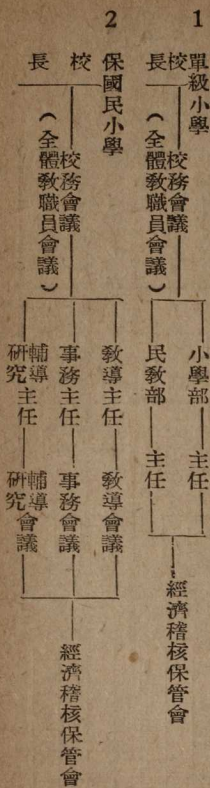 1 單級小學
校長
校務會議
（全體教職員會議）
小學部
主任
民教部
主任
經濟稽核保管會
2 保國民小學
校長
校務會議
（全體教職員會議）
教導主任
教導會議
事務主任
事務會議
輔導研究主任
輔導研究會議
經濟稽核保管會